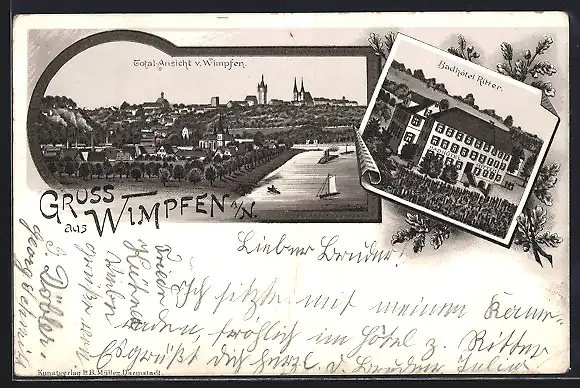 Total-Ansicht v. Wimpfen.
Badhôtel Ritter.
GRUSS
aus WIMPFEN A/N.
Lieber Bruder!
Ich sitze mit meinen Kame-
raden, fröhlich im Hôtel z. Ritter
Es grüßt Dich herzl. d. Bruder Julius
Georg Schmid
Kunstverlag H. B. Müller, Darmstadt.